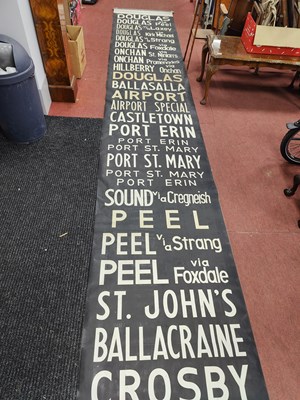 DOUGLAS
DOUGLAS via PEEL
DOUGLAS via Laxey
DOUGLAS via Kirk Michael
DOUGLAS via Strang
DOUGLAS via Foxdale
ONCHAN via St. Ninian's
ONCHAN via Promenades
HILLBERRY via Onchan
DOUGLAS
BALLASALLA
AIRPORT
AIRPORT SPECIAL
CASTLETOWN
PORT ERIN
PORT ERIN
PORT ST. MARY
PORT ST. MARY
PORT ST. MARY
PORT ERIN
SOUND via Cregneish
PEEL
PEEL via Strang
PEEL via Foxdale
ST. JOHN'S
BALLACRAINE
CROSBY